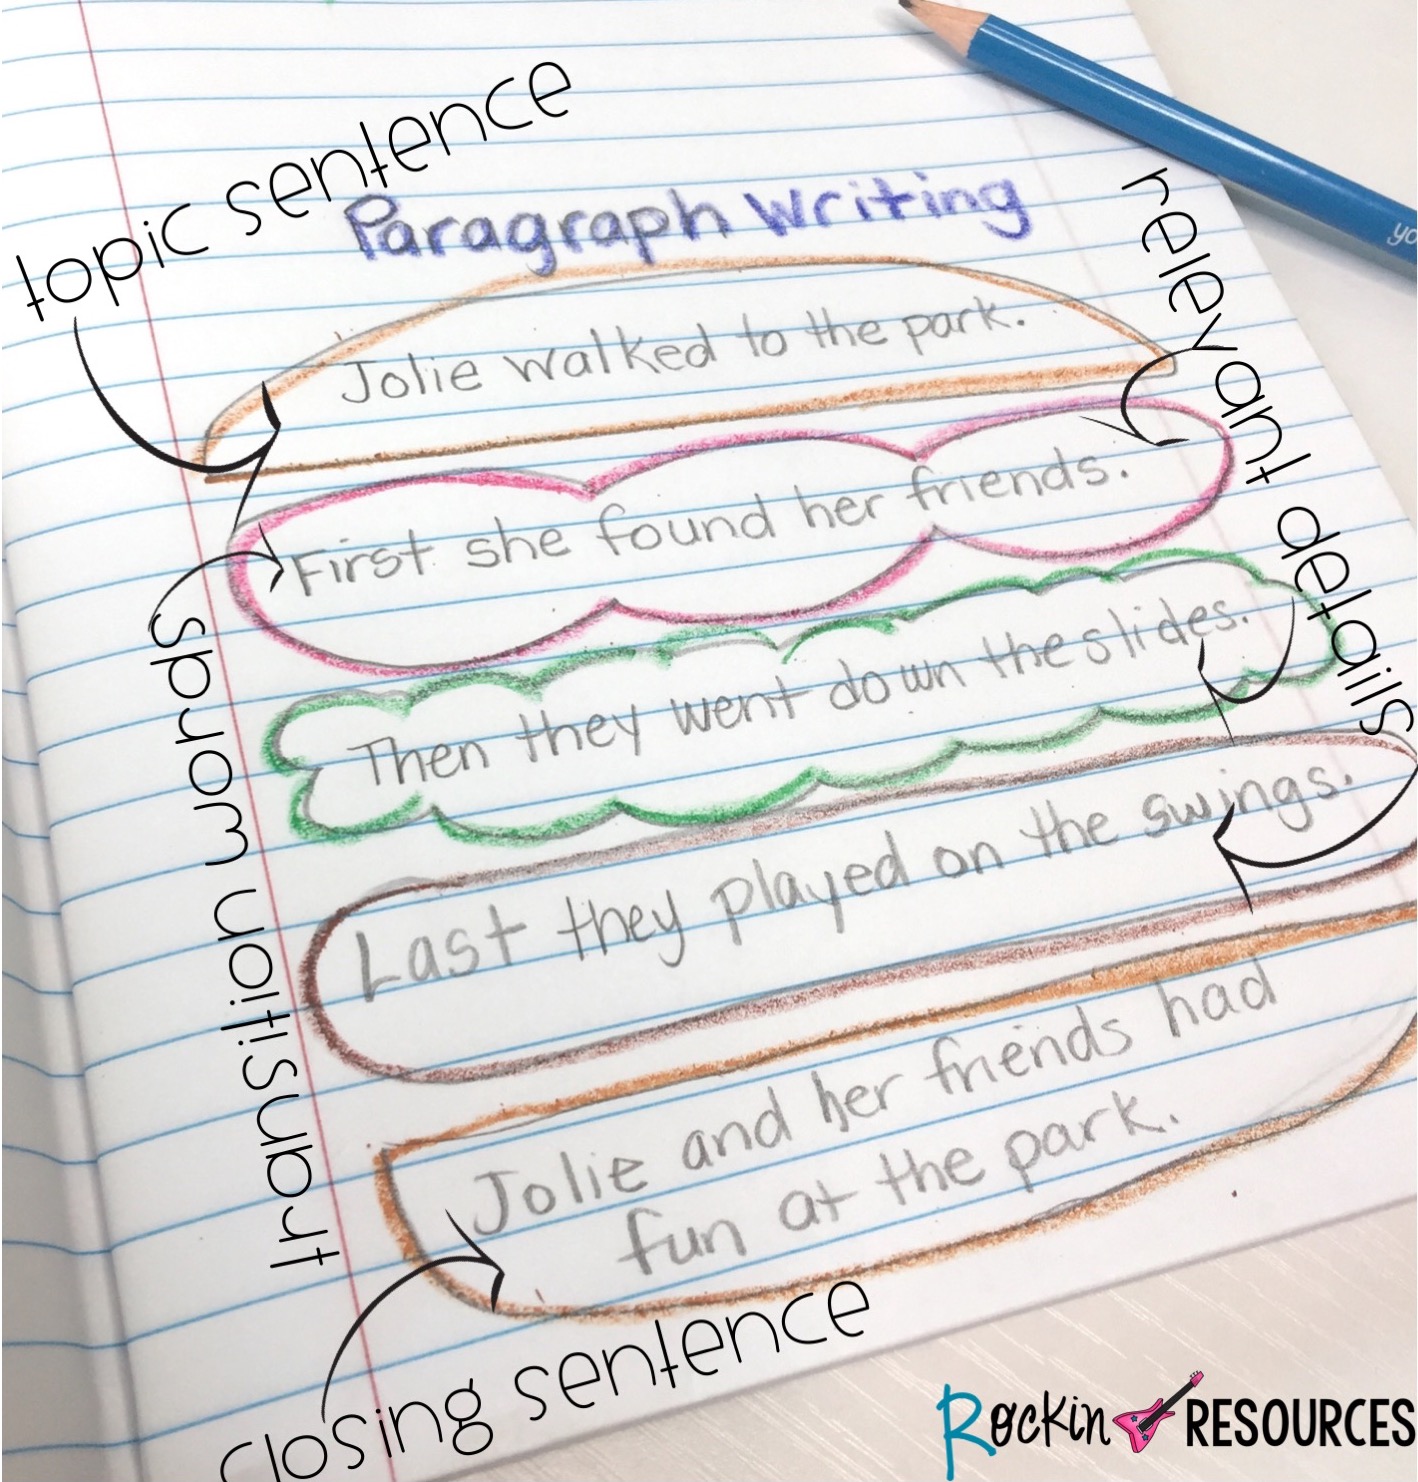 topic sentence
Paragraph Writing
relevant details
Jolie walked to the park.
First she found her friends.
Then they went down the slides.
Last they played on the swings.
Jolie and her friends had
fun at the park.
transition words
closing sentence
Rockin RESOURCES